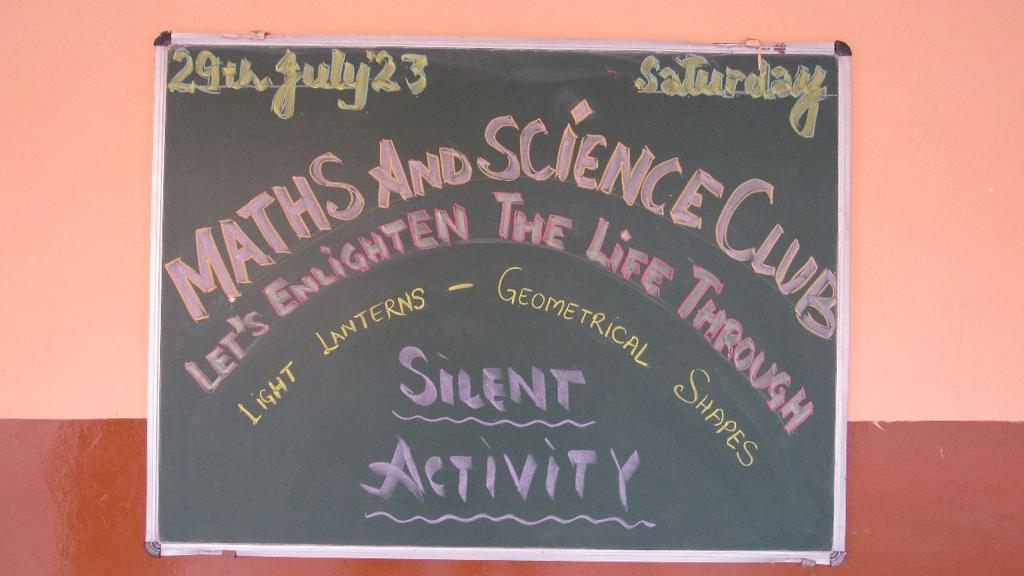 29th July'23 Saturday
MATHS AND SCIENCE CLUB
LET'S ENLIGHTEN THE LIFE THROUGH
LIGHT LANTERNS - GEOMETRICAL SHAPES
SILENT
ACTIVITY